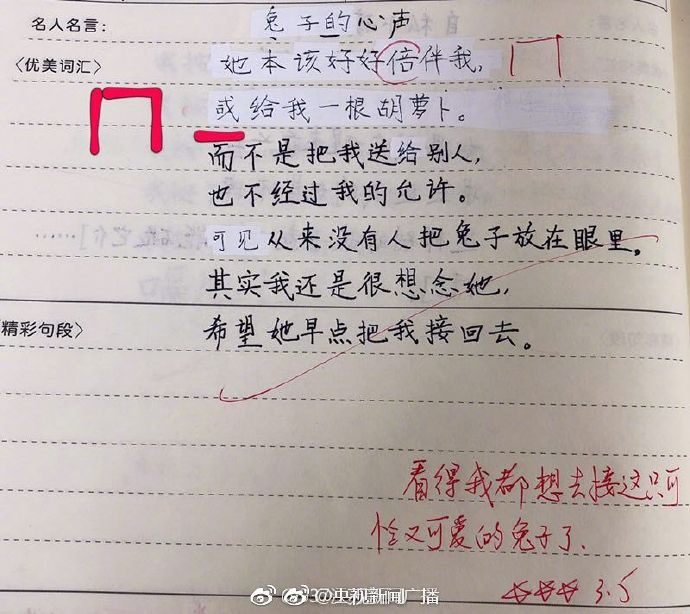 名人名言: 兔子的心声
〈优美词汇〉 她本该好好倍伴我,
或给我一根胡萝卜。
而不是把我送给别人,
也不经过我的允许。
可见从来没有人把兔子放在眼里。
其实我还是很想念她,
〈精彩句段〉 希望她早点把我接回去。
看得我都想去接这只可
怜又可爱的兔子了.
3.5
@央视新闻广播